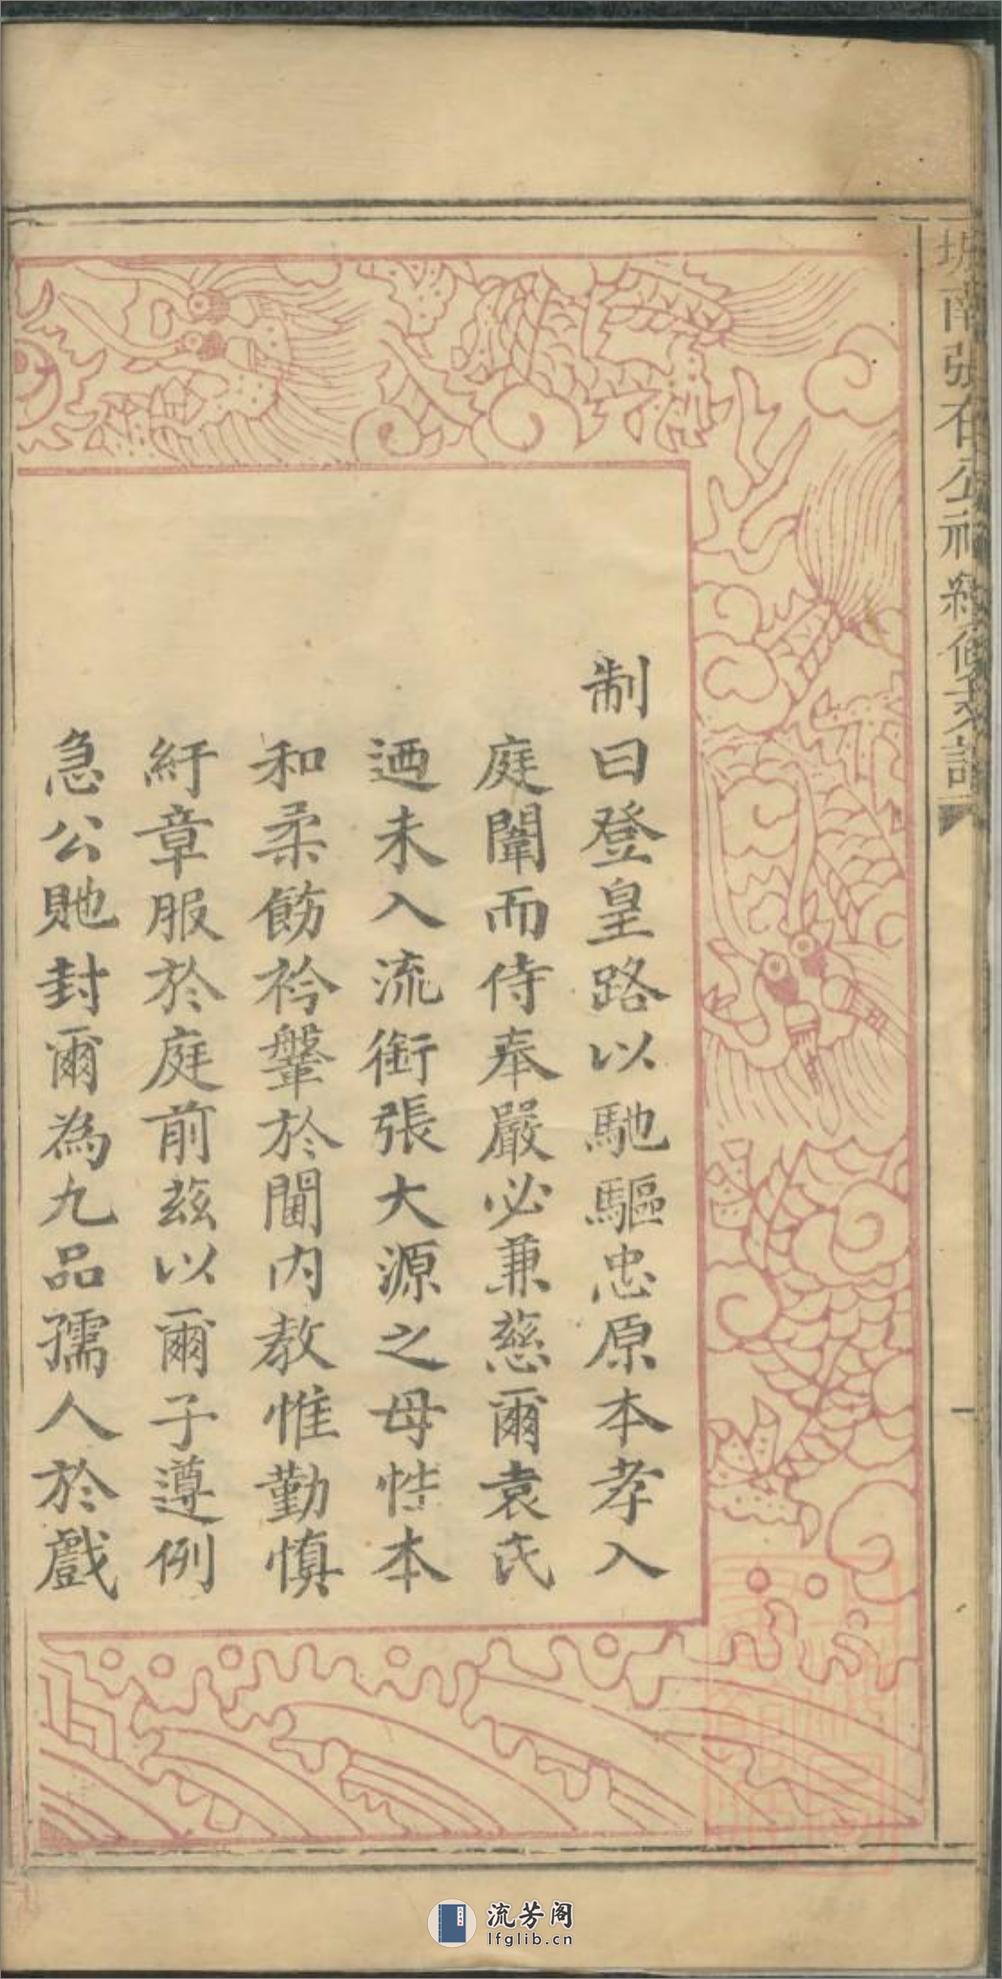 制曰登皇路以馳驅忠原本孝入
庭闈而侍奉嚴必兼慈爾袁氏
迺未入流銜張大源之母性本
和柔飭衿鞶於閫内教惟勤慎
紆章服於庭前兹以爾子遵例
急公貤封爾為九品孺人於戲
南張石公祠續修支譜
一
流芳阁
lfglib.cn